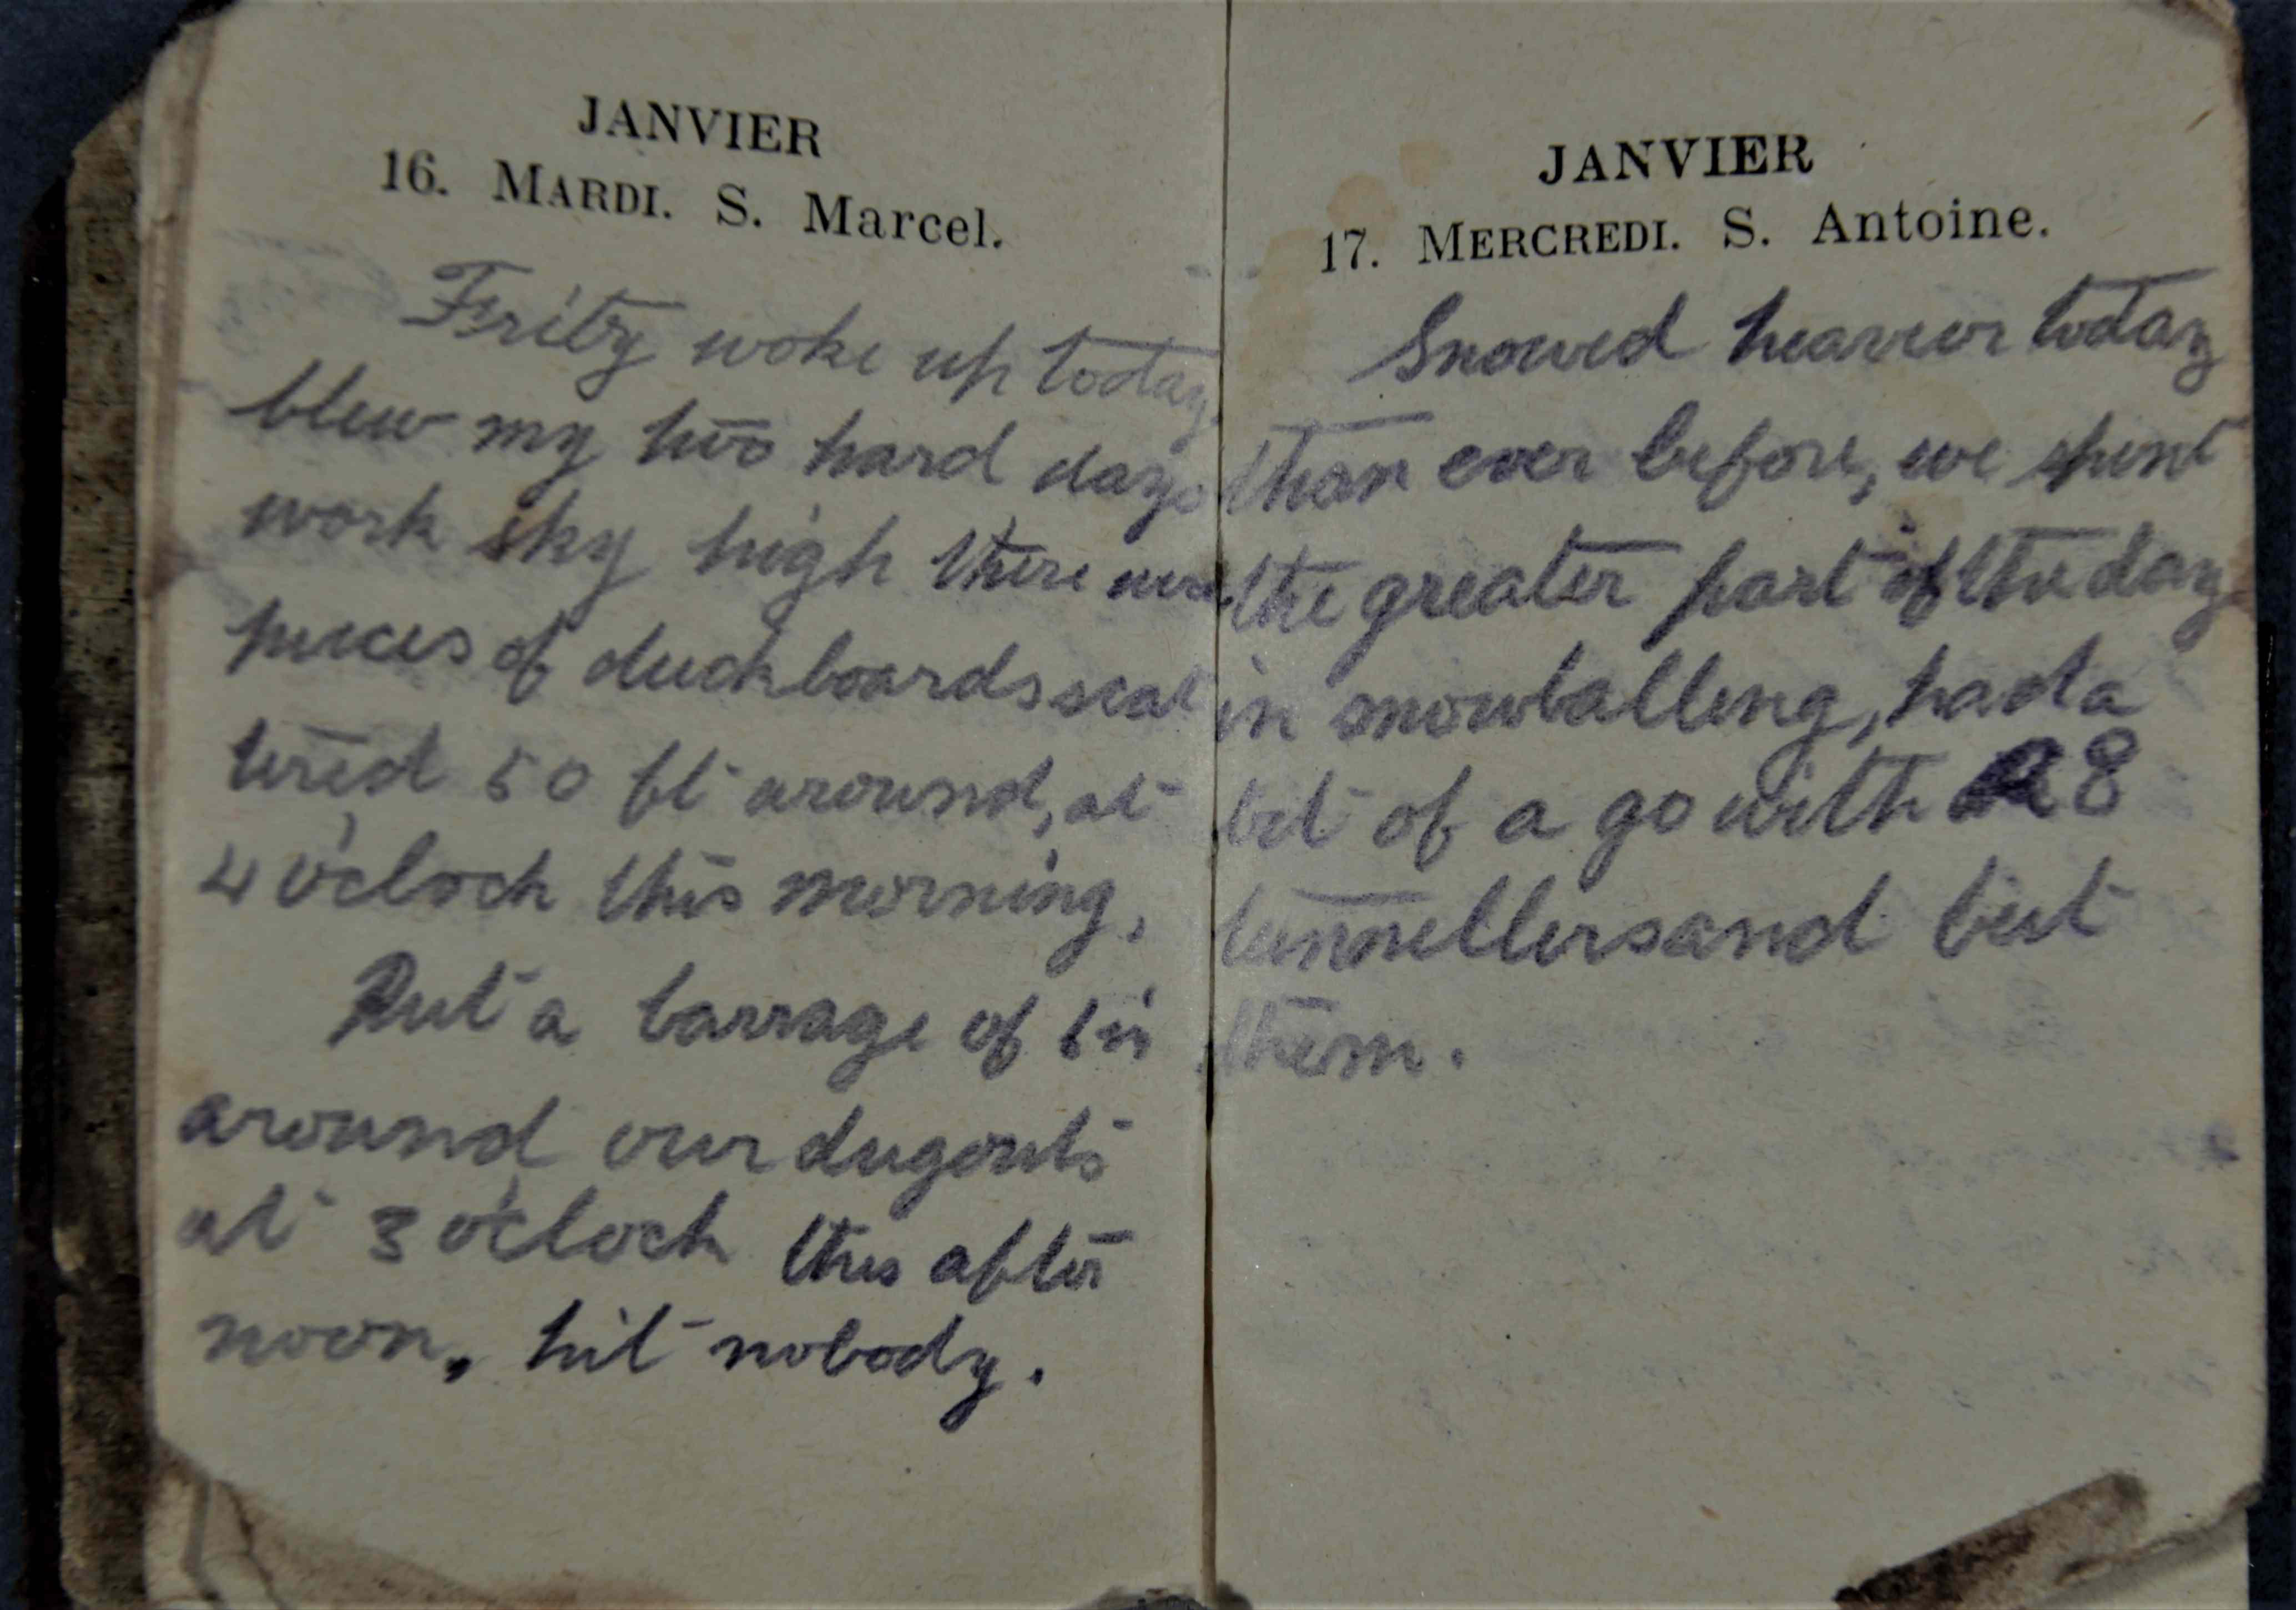 JANVIER
16. MARDI. S. Marcel.
Fritz woke up today
blew my two hard days
work sky high there were
pieces of duckboards scat
tered 50 ft around, at
4 o'clock this morning,
Put a barrage of
around our dugouts
at 3 o'clock this after
noon, hit nobody.
JANVIER
17. MERCREDI. S. Antoine.
Snowed heavier today
than ever before, we spent
the greater part of the day
in snowballing, had a
bit of a go with 28
tunnellers and beat
them.